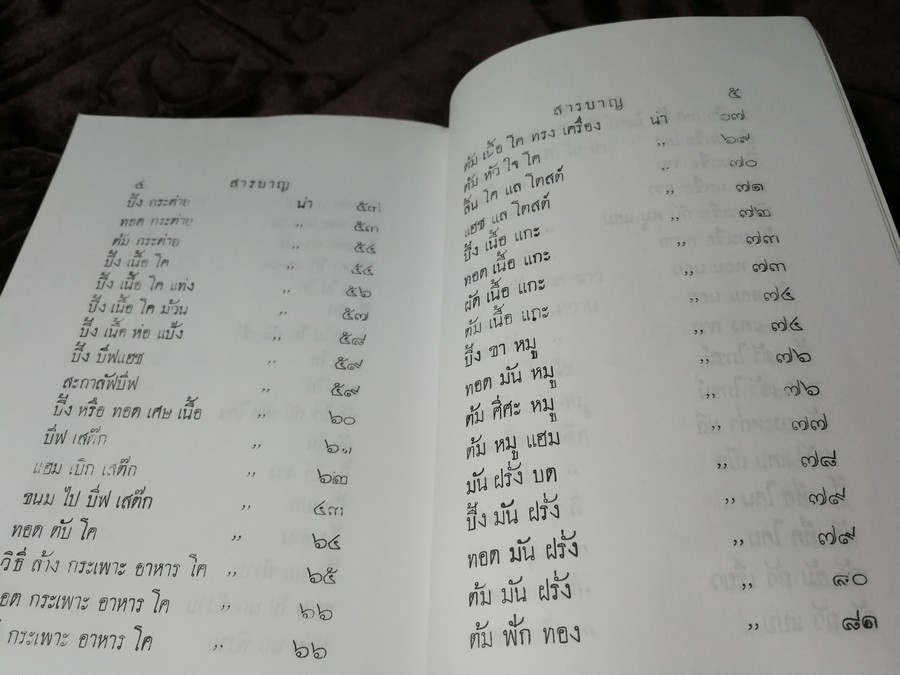 ๔ สารบาญ
ปิ้ง กระต่าย น่า ๕๓
ทอด กระต่าย ,, ๕๓
ต้ม กระต่าย ,, ๕๔
ปิ้ง เนื้อ โค ,, ๕๔
ปิ้ง เนื้อ โค แท่ง ,, ๕๖
ปิ้ง เนื้อ โค ม้วน ,, ๕๗
ปิ้ง เนื้อ ห่อ แป้ง ,, ๕๘
ปิ้ง บีฟแฮช ,, ๕๙
สะกาลัฟบีฟ ,, ๕๙
ปิ้ง หรือ ทอด เศษ เนื้อ ,, ๖๐
บีฟ เสต๊ก ,, ๖๑
แฮม เบิก เสต๊ก ,, ๖๒
ขนม ไป บีฟ เสต๊ก ,, ๔๓
ทอด ตับ โค ,, ๖๔
วิธี ล้าง กระเพาะ อาหาร โค ,, ๖๕
อด กระเพาะ อาหาร โค ,, ๖๖
กระเพาะ อาหาร โค ,, ๖๖
สารบาญ ๕
ต้ม เนื้อ โค ทรง เครื่อง น่า ๖๗
ต้ม หัว ใจ โค ,, ๖๙
ลิ้น โค แล โตสต์ ,, ๗๐
แฮช แล โตสต์ ,, ๗๑
ปิ้ง เนื้อ แกะ ,, ๗๒
ทอด เนื้อ แกะ ,, ๗๓
ผัด เนื้อ แกะ ,, ๗๓
ต้ม เนื้อ แกะ ,, ๗๔
ปิ้ง ขา หมู ,, ๗๔
ทอด มัน หมู ,, ๗๖
ต้ม ศีศะ หมู ,, ๗๖
ต้ม หมู แฮม ,, ๗๗
มัน ฝรั่ง บด ,, ๗๘
ปิ้ง มัน ฝรั่ง ,, ๗๙
ทอด มัน ฝรั่ง ,, ๗๙
ต้ม มัน ฝรั่ง ,, ๘๐
ต้ม ฟัก ทอง ,, ๘๑